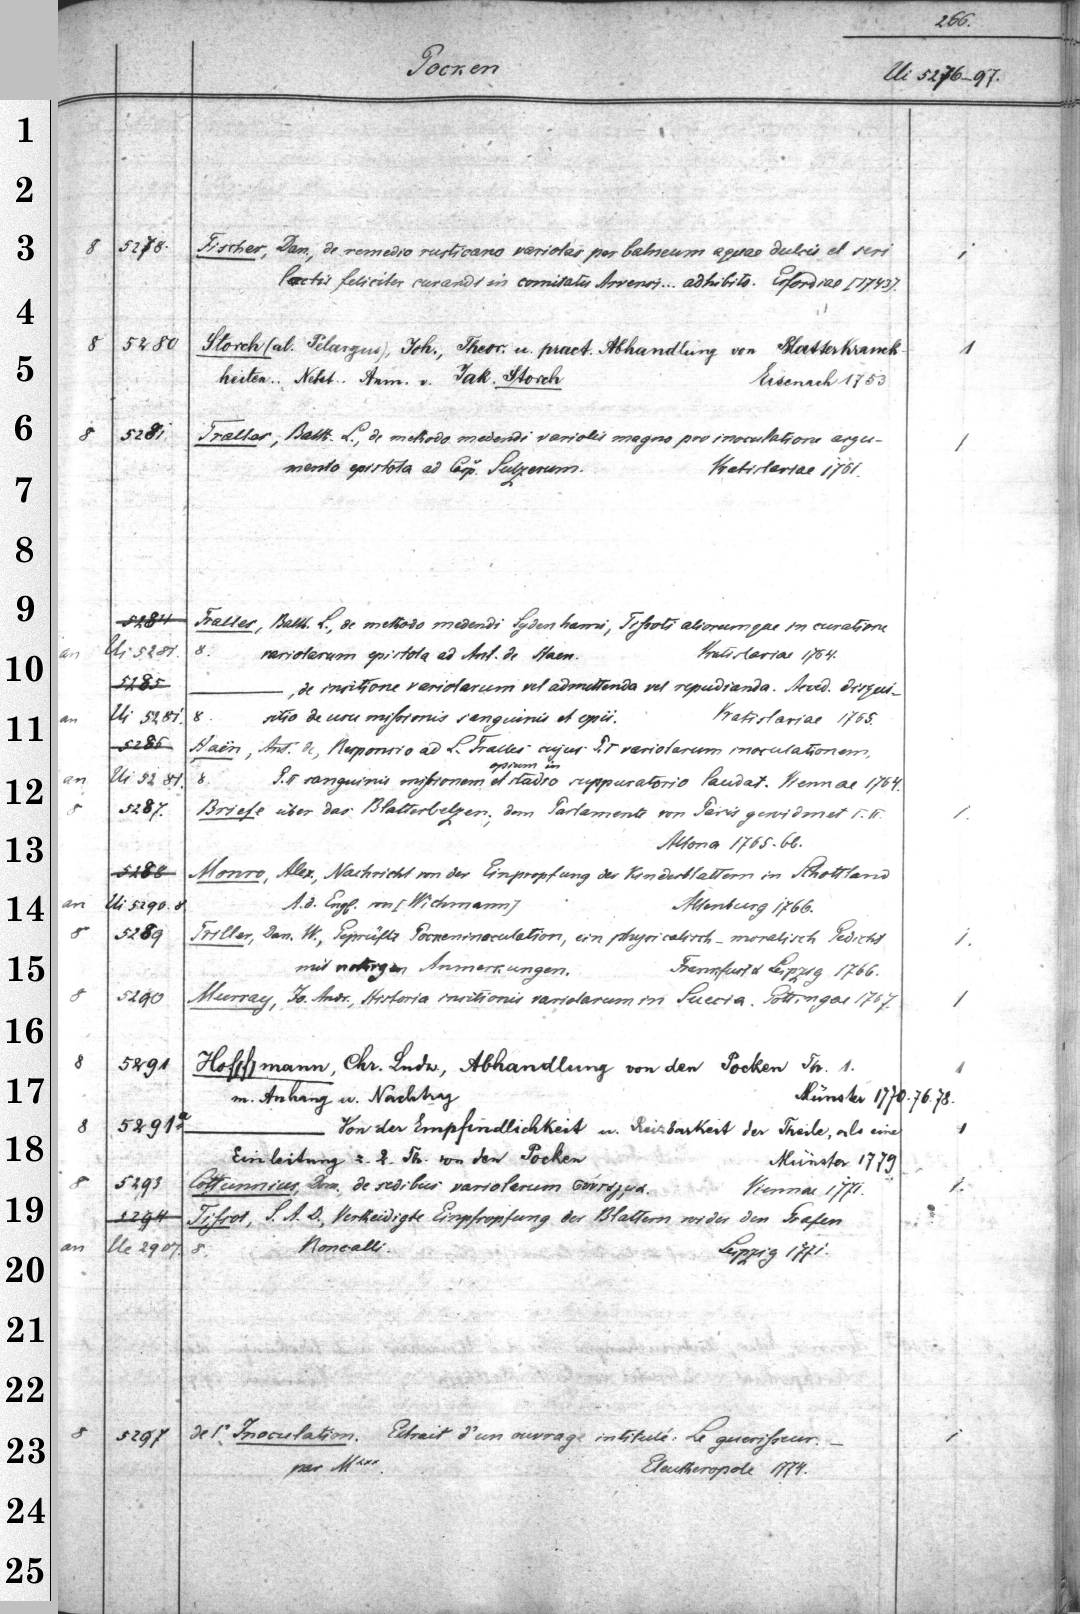 266.
Pocken
Ui 5276-97.
1
2
3
8 5278. Fischer, Dan., de remedio rusticano variolas per balneum aquae dulcis et seri 1
lactis feliciter curandi in comitatu Arvensi... adhibito. Erfordiae [1743].
4
8 5280 Storch (al. Pelargus), Joh., Theor. u. pract. Abhandlung von Blatterkranck- 1
5
heiten.. Nebst.. Anm. v. Jak. Storch Eisenach 1753
6
8 5281 Tralles, Balth. L., de methodo medendi variolis magno pro inoculatione argu- 1
mento epistola ad Casp. Sulzerum. Vratislaviae 1761.
7
8
9
5284 Tralles, Balth. L., de methodo medendi Sydenhami, Tissoti aliorumque in curatione
an Ui 5281. 8. variolarum epistola ad Ant. de Haen. Vratislaviae 1764.
10
5285 ———, de insitione variolarum vel admittenda vel repudianda. Acced. disqui-
an Ui 5281. 8. sitio de usu missionis sanguinis et opii. Vratislaviae 1765.
11
5286 Haën, Ant. de, Responsio ad L. Tralles cujus P.I variolarum inoculationem,
opium in
an Ui 5281. 8. P.II sanguinis missionem et stadio suppuratorio laudat. Viennae 1764.
12
8 5287. Briefe über das Blatterbelzen, dem Parlamente von Paris gewidmet I.II. 1.
13
Altona 1765-66.
5288 Monro, Alex., Nachricht von der Einpropfung der Kinderblattern in Schottland
14
an Ui 5290. 8 A.d. Engl. von [Wichmann] Altenburg 1766.
8 5289 Triller, Dan. W., Geprüfte Pockeninoculation, ein physicalisch-moralisch Gedicht 1.
15
mit nothigen Anmerkungen. Frankfurt & Leipzig 1766.
8 5290 Murray, Jo. Andr., Historia insitionis variolarum in Suecia. Göttingae 1767. 1
16
8 5291 Hoffmann, Chr. Ludw., Abhandlung von den Pocken Th. 1. 1
17
m. Anhang u. Nachtrag Münster 1770.76.78.
8 5291a ——— Von der Empfindlichkeit u. Reizbarkeit der Theile, als eine 1
18
Einleitung z. 2. Th. von den Pocken Münster 1779
8 5293 Cottunnius, Dom. de sedibus variolarum Viennae 1771. 1.
19
5294 Tissot, S. A. D., Vertheidigte Einpfropfung der Blattern wider den Grafen
an Ue 2907. 8. Roncalli. Leipzig 1771.
20
21
22
8 5297 de l' Inoculation. Extrait d'un ouvrage intitulé: Le guerisseur. — 1
23
par M***. Eleutheropole 1774.
24
25